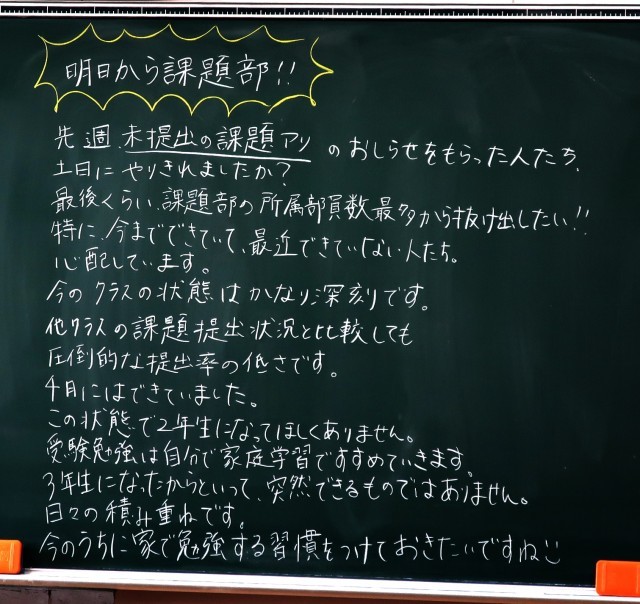 明日から課題部!!
先週、未提出の課題アリ のおしらせをもらった人たち、
土日にやりきれましたか?
最後くらい、課題部の所属部員数最多から抜け出したい!!
特に、今までできていて、最近できていない人たち。
心配しています。
今のクラスの状態はかなり深刻です。
他クラスの課題提出状況と比較しても
圧倒的な提出率の低さです。
4月にはできていました。
この状態で2年生になってほしくありません。
受験勉強は自分で家庭学習ですすめていきます。
3年生になったからといって、突然できるものではありません。
日々の積み重ねです。
今のうちに家で勉強する習慣をつけておきたいですね